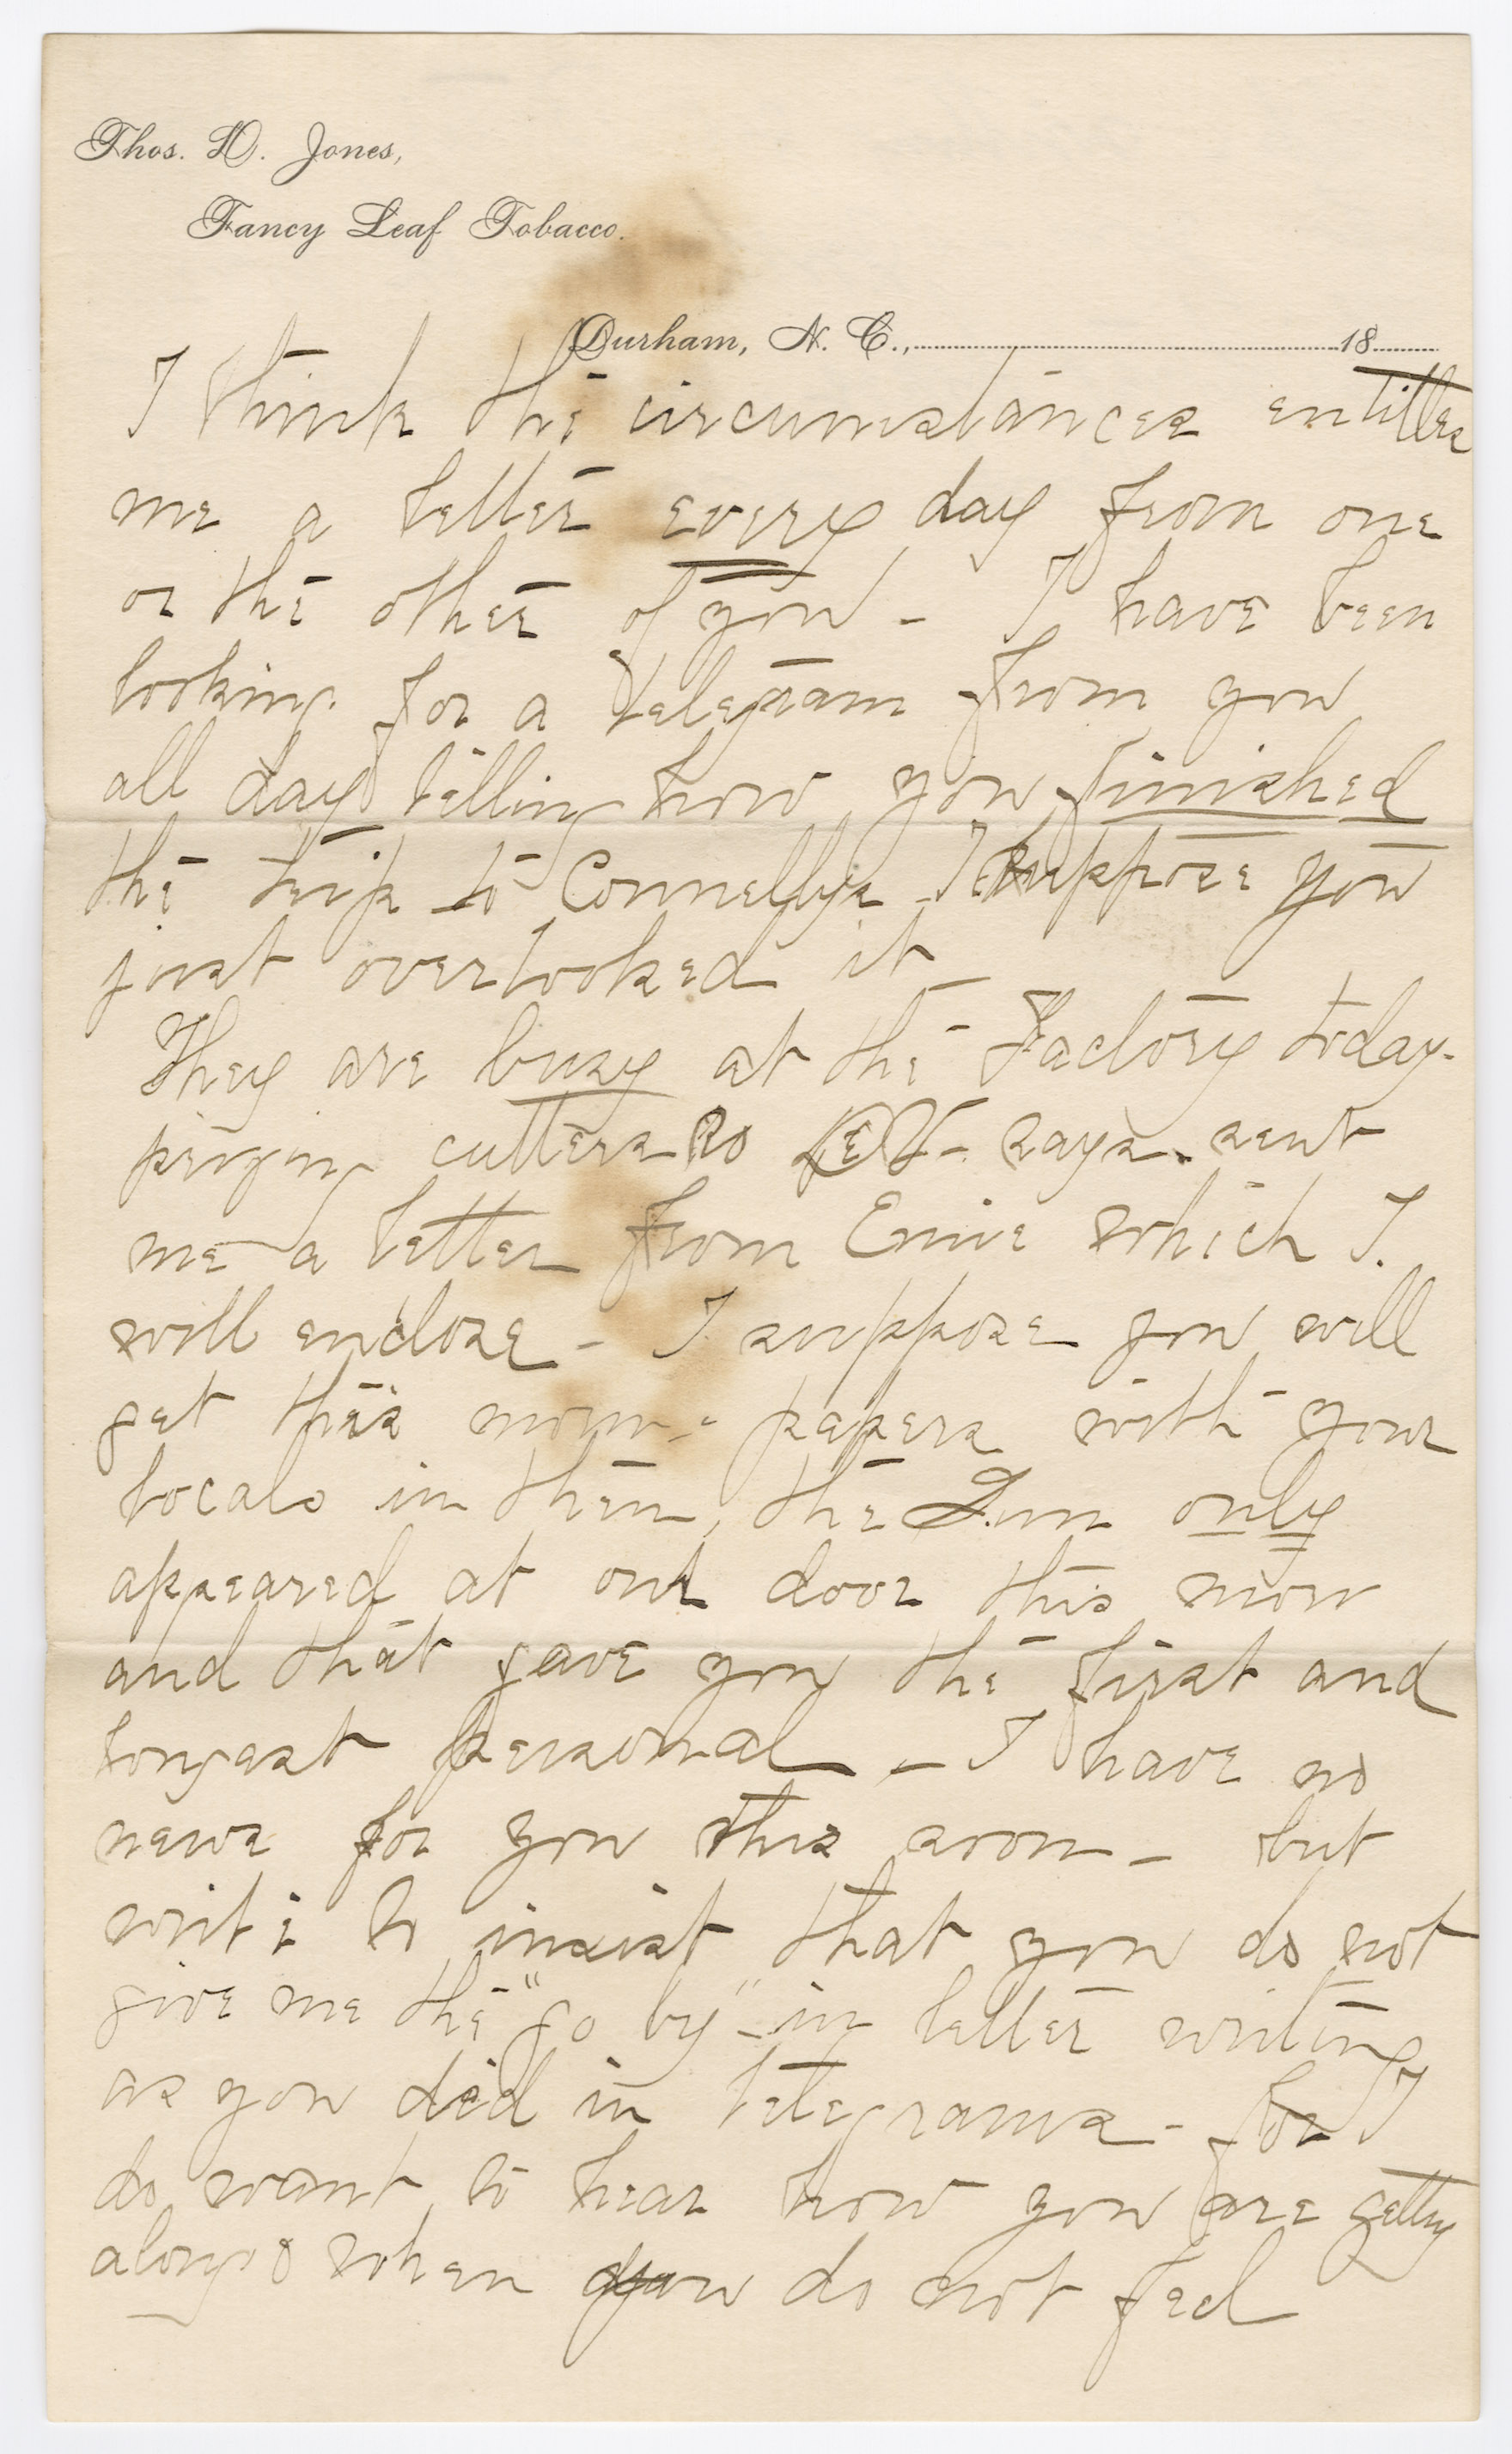 Thos. D. Jones,
Fancy Leaf Tobacco.
Durham, N. C., 18
I think the circumstances entitles
me a letter every day from one
or the other of you - I have been
looking for a telegram from you
all day telling how you finished
the trip to Connellys - I suppose you
just overlooked it -
They are busy at the Factory today -
cutters so says - sent
me a letter from Ernie which I
will enclose - I suppose you will
get this papers with your
locals in them, the Sun only
appeared at our door this morn
and that gave you the first and
longest personal - I have no
news for you this soon - but
write to insist that you do not
give me the "go by" - in letter writing
as you did in telegrams - for I
do want to hear how you are getting
along & when you do not feel